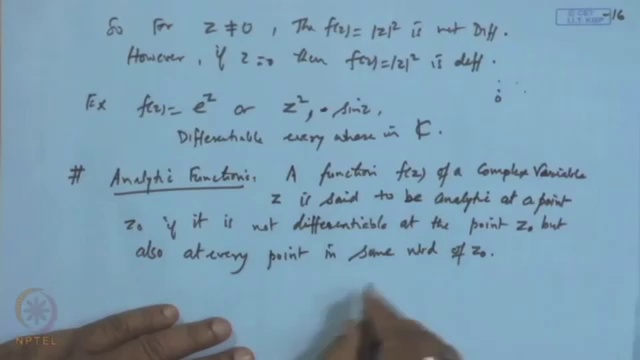 So For z ≠ 0, The f(z) = |z|² is not Diff.
However, if z=0 then f(z)=|z|² is diff.
Ex f(z) = e^z or z², sinz,
Differentiable every where in ℂ.
# Analytic Functions: A function f(z) of a Complex Variable
z is said to be analytic at a point
z₀ if it is not differentiable at the point z₀ but
also at every point in some nbd of z₀.
© CET
I.I.T. KGP
-16
NPTEL